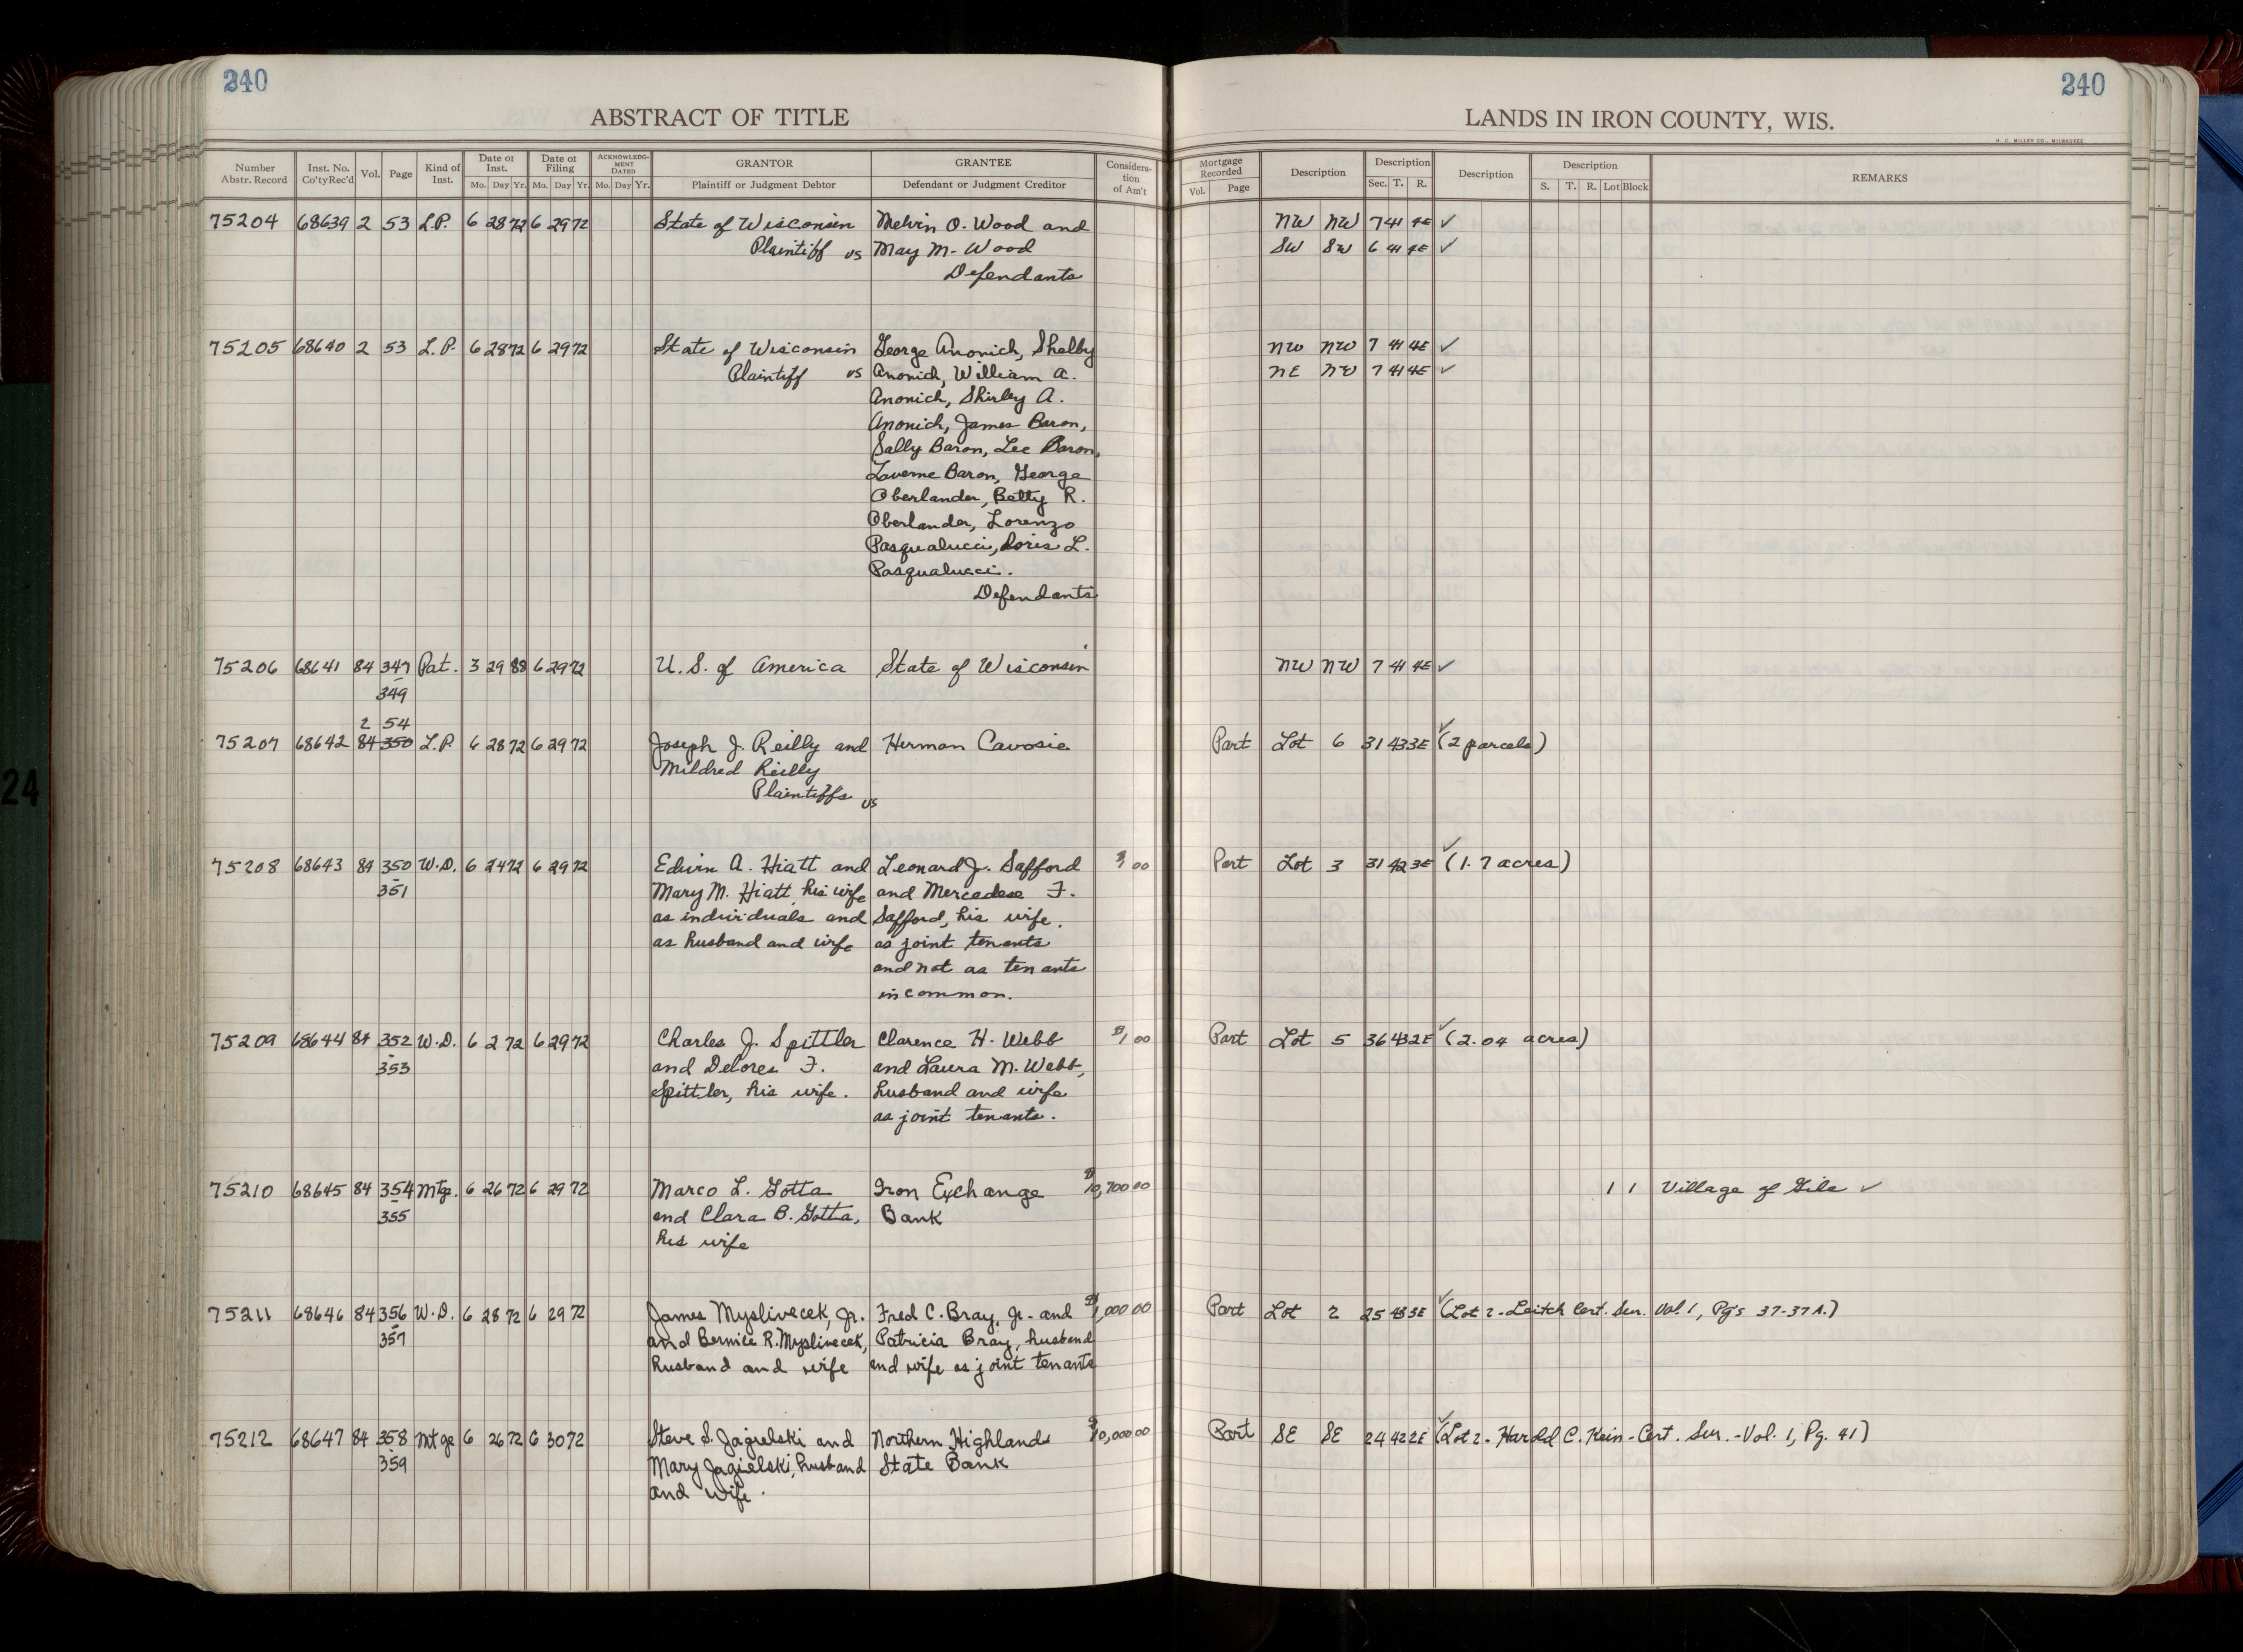 240
240
ABSTRACT OF TITLE
LANDS IN IRON COUNTY, WIS.
H. C. MILLER CO., MILWAUKEE
Number Abstr. Record | Inst. No. Co'ty Rec'd | Vol. | Page | Kind of Inst. | Date of Inst. Mo. Day Yr. | Date of Filing Mo. Day Yr. | ACKNOWLEDGMENT DATED Mo. Day Yr. | GRANTOR Plaintiff or Judgment Debtor | GRANTEE Defendant or Judgment Creditor | Consideration of Am't | Mortgage Recorded Vol. Page | Description | Description Sec. T. R. | Description | Description S. T. R. Lot Block | REMARKS
75204 68639 2 53 L.P. 6 28 72 6 29 72 State of Wisconsin Melvin O. Wood and NW NW 7 41 4E ✓
Plaintiff vs May M. Wood SW SW 6 41 4E ✓
Defendants
75205 68640 2 53 L.P. 6 28 72 6 29 72 State of Wisconsin George Anonich, Shelby NW NW 7 41 4E ✓
Plaintiff vs Anonich, William A. NE NW 7 41 4E ✓
Anonich, Shirley A.
Anonich, James Baron,
Sally Baron, Lee Baron,
Laverne Baron, George
Oberlander, Betty R.
Oberlander, Lorenzo
Pasqualucci, Doris L.
Pasqualucci.
Defendants
75206 68641 84 347 Pat. 3 29 88 6 29 72 U. S. of America State of Wisconsin NW NW 7 41 4E ✓
- 349
2 54
75207 68642 84 350 L.P. 6 28 72 6 29 72 Joseph J. Reilly and Herman Cavosie Part Lot 6 31 43 3E ✓ (2 parcels)
Mildred Reilly
Plaintiffs vs
75208 68643 84 350 W.D. 6 24 72 6 29 72 Edwin A. Hiatt and Leonard J. Safford $1.00 Part Lot 3 31 42 3E ✓ (1.7 acres)
- 351 Mary M. Hiatt, his wife and Mercedese F.
as individuals and Safford, his wife,
as husband and wife as joint tenants
and not as tenants
in common.
75209 68644 84 352 W.D. 6 2 72 6 29 72 Charles J. Spittler Clarence H. Webb $1.00 Part Lot 5 36 43 2E ✓ (2.04 acres)
- 353 and Delores F. and Laura M. Webb,
Spittler, his wife. husband and wife
as joint tenants.
75210 68645 84 354 Mtge. 6 26 72 6 29 72 Marco L. Gotta Iron Exchange $10,700 00 1 1 Village of Gile ✓
- 355 and Clara B. Gotta, Bank
his wife
75211 68646 84 356 W.D. 6 28 72 6 29 72 James Myslivecek, Jr. Fred C. Bray, Jr. and $1,000 00 Part Lot 2 25 43 3E ✓ (Lot 2 - Leitch Cert. Sur. Vol. 1, Pg's 37-37A.)
- 357 and Bernice R. Myslivecek, Patricia Bray, husband
husband and wife and wife as joint tenants
75212 68647 84 358 Mtge 6 26 72 6 30 72 Steve S. Jagielski and Northern Highland $10,000 00 Part SE SE 24 42 2E ✓ (Lot 2 - Harold C. Hein - Cert. Sur. - Vol. 1, Pg. 41)
- 359 Mary Jagielski, husband State Bank
and wife.
24